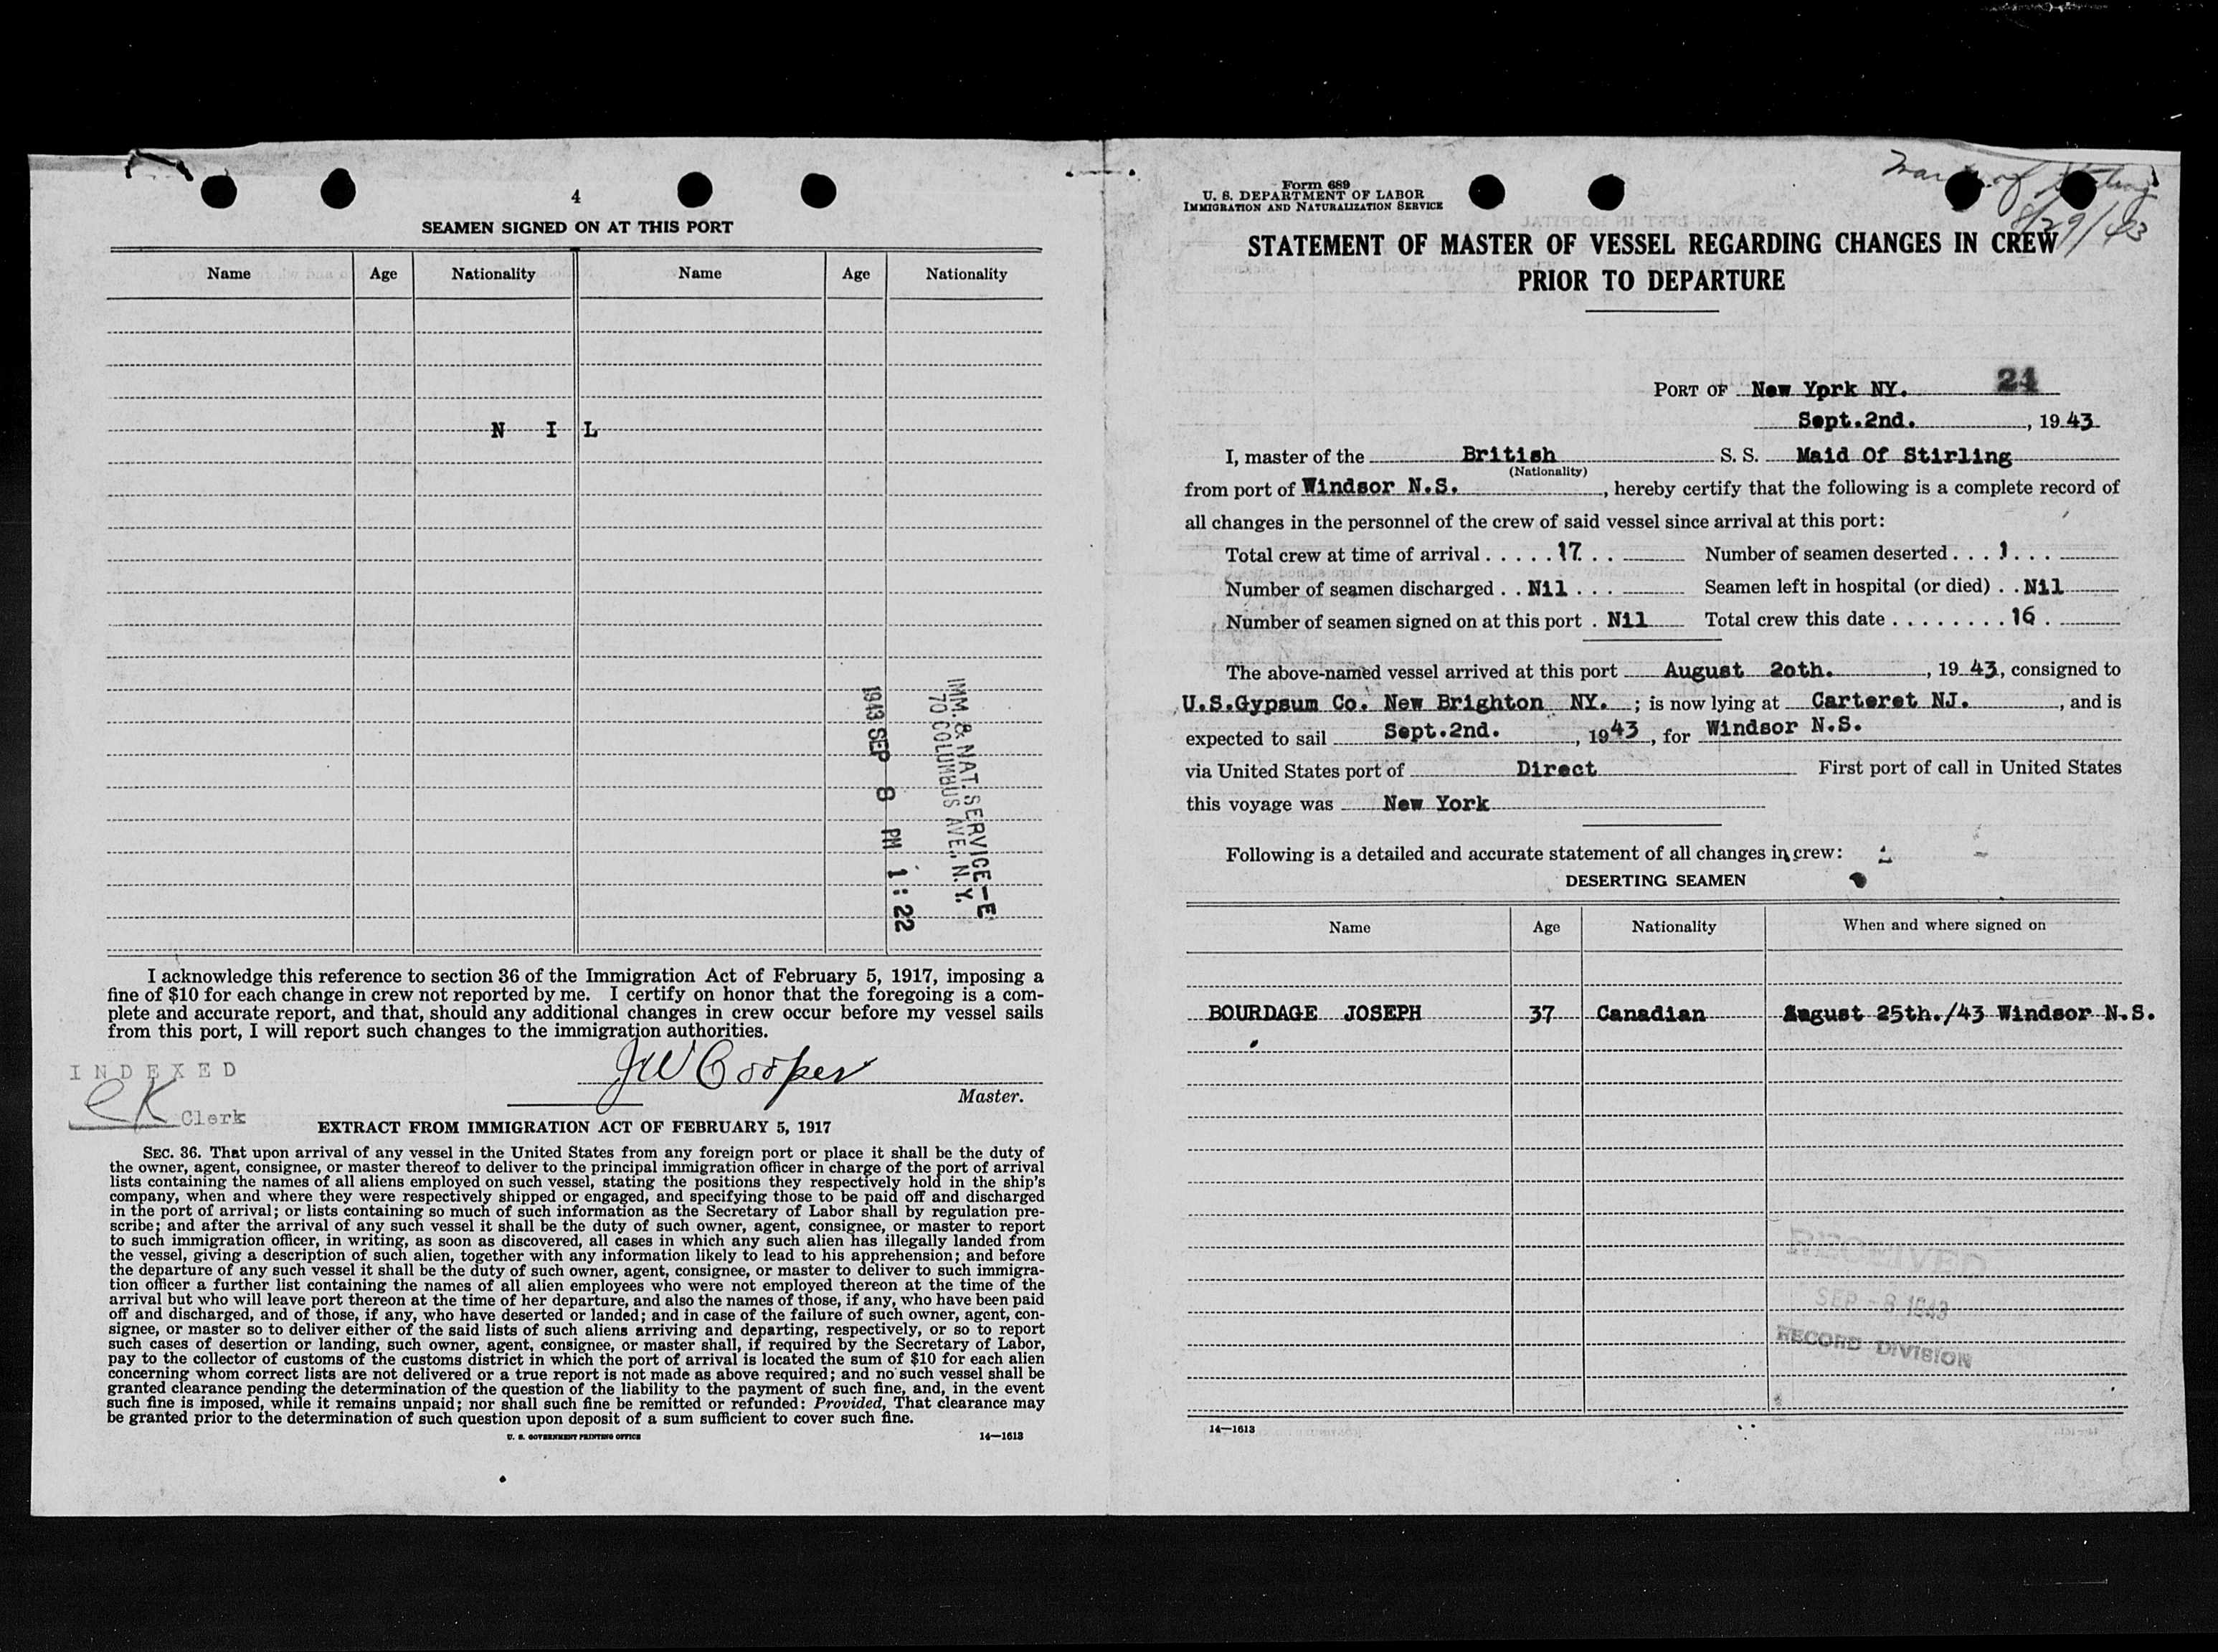 4
SEAMEN SIGNED ON AT THIS PORT
Name Age Nationality Name Age Nationality
N I L
IMM. & NAT. SERVICE-E
70 COLUMBUS AVE., N.Y.
1943 SEP 8 PM 1:22
I acknowledge this reference to section 36 of the Immigration Act of February 5, 1917, imposing a
fine of $10 for each change in crew not reported by me. I certify on honor that the foregoing is a com-
plete and accurate report, and that, should any additional changes in crew occur before my vessel sails
from this port, I will report such changes to the immigration authorities.
INDEXED
CK Clerk
JW Cooper
Master.
EXTRACT FROM IMMIGRATION ACT OF FEBRUARY 5, 1917
SEC. 36. That upon arrival of any vessel in the United States from any foreign port or place it shall be the duty of
the owner, agent, consignee, or master thereof to deliver to the principal immigration officer in charge of the port of arrival
lists containing the names of all aliens employed on such vessel, stating the positions they respectively hold in the ship's
company, when and where they were respectively shipped or engaged, and specifying those to be paid off and discharged
in the port of arrival; or lists containing so much of such information as the Secretary of Labor shall by regulation pre-
scribe; and after the arrival of any such vessel it shall be the duty of such owner, agent, consignee, or master to report
to such immigration officer, in writing, as soon as discovered, all cases in which any such alien has illegally landed from
the vessel, giving a description of such alien, together with any information likely to lead to his apprehension; and before
the departure of any such vessel it shall be the duty of such owner, agent, consignee, or master to deliver to such immigra-
tion officer a further list containing the names of all alien employees who were not employed thereon at the time of the
arrival but who will leave port thereon at the time of her departure, and also the names of those, if any, who have been paid
off and discharged, and of those, if any, who have deserted or landed; and in case of the failure of such owner, agent, con-
signee, or master so to deliver either of the said lists of such aliens arriving and departing, respectively, or so to report
such cases of desertion or landing, such owner, agent, consignee, or master shall, if required by the Secretary of Labor,
pay to the collector of customs of the customs district in which the port of arrival is located the sum of $10 for each alien
concerning whom correct lists are not delivered or a true report is not made as above required; and no such vessel shall be
granted clearance pending the determination of the question of the liability to the payment of such fine, and, in the event
such fine is imposed, while it remains unpaid; nor shall such fine be remitted or refunded: Provided, That clearance may
be granted prior to the determination of such question upon deposit of a sum sufficient to cover such fine.
U. S. GOVERNMENT PRINTING OFFICE 14—1613
Form 689
U. S. DEPARTMENT OF LABOR
IMMIGRATION AND NATURALIZATION SERVICE
of
8/29/43
STATEMENT OF MASTER OF VESSEL REGARDING CHANGES IN CREW
PRIOR TO DEPARTURE
PORT OF New Yprk NY. 24
Sept.2nd. , 1943
I, master of the British S. S. Maid Of Stirling
(Nationality)
from port of Windsor N.S. , hereby certify that the following is a complete record of
all changes in the personnel of the crew of said vessel since arrival at this port:
Total crew at time of arrival . . . . . 17 . . Number of seamen deserted . . . 1 . . .
Number of seamen discharged . . Nil . . . Seamen left in hospital (or died) . . Nil
Number of seamen signed on at this port . Nil Total crew this date . . . . . . . . 16 .
The above-named vessel arrived at this port August 2oth. , 1943, consigned to
U.S.Gypsum Co. New Brighton NY. ; is now lying at Carteret NJ. , and is
expected to sail Sept.2nd. , 1943, for Windsor N.S.
via United States port of Direct First port of call in United States
this voyage was New York
Following is a detailed and accurate statement of all changes in crew:
DESERTING SEAMEN
Name Age Nationality When and where signed on
BOURDAGE JOSEPH 37 Canadian August 25th./43 Windsor N.S.
RECEIVED
SEP -8 1943
RECORD DIVISION
14—1613